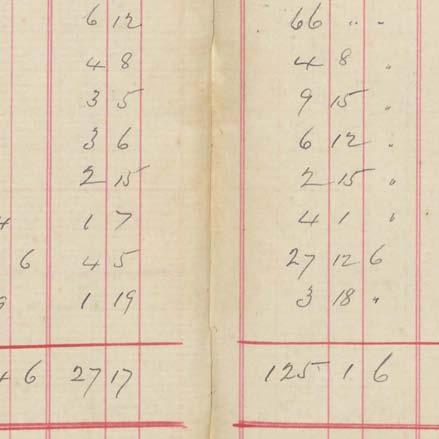 6 12 66 " "
4 8 4 8 "
3 5 9 15 "
3 6 6 12 "
2 15 2 15 "
4 1 7 4 1 "
6 4 5 27 12 6
1 19 3 18 "
4 6 27 17 125 1 6